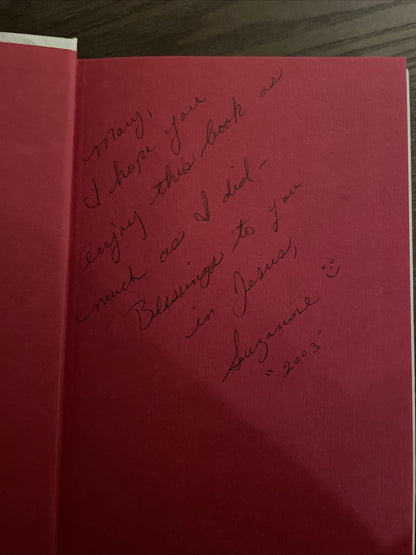 Mary,
I hope you
enjoy this book as
much as I did-
Blessings to you
in Jesus,
Suzanne :)
"2003"